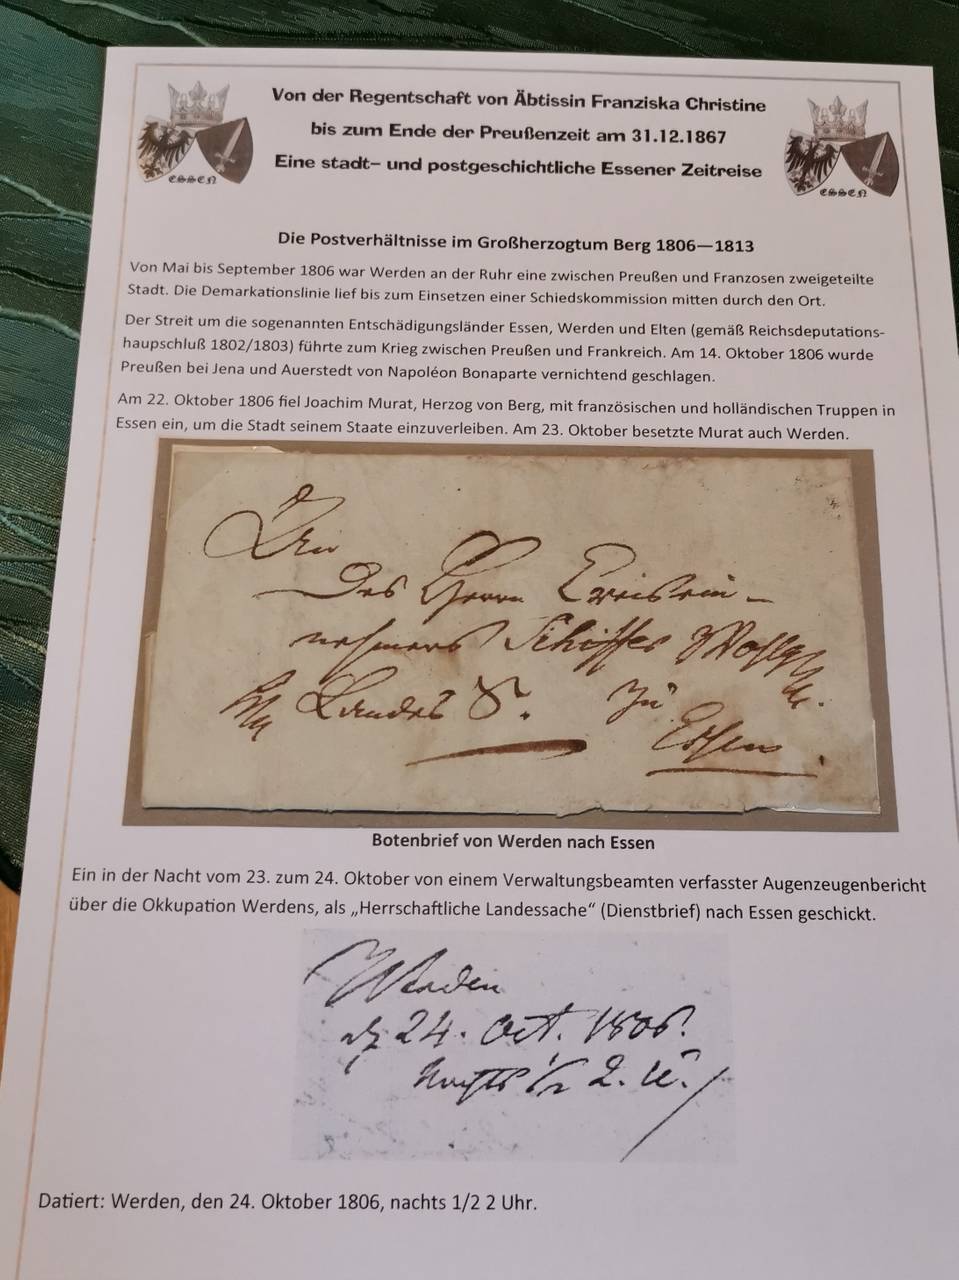 Von der Regentschaft von Äbtissin Franziska Christine
bis zum Ende der Preußenzeit am 31.12.1867
Eine stadt- und postgeschichtliche Essener Zeitreise
ESSEN
ESSEN
Die Postverhältnisse im Großherzogtum Berg 1806—1813
Von Mai bis September 1806 war Werden an der Ruhr eine zwischen Preußen und Franzosen zweigeteilte
Stadt. Die Demarkationslinie lief bis zum Einsetzen einer Schiedskommission mitten durch den Ort.
Der Streit um die sogenannten Entschädigungsländer Essen, Werden und Elten (gemäß Reichsdeputations-
haupschluß 1802/1803) führte zum Krieg zwischen Preußen und Frankreich. Am 14. Oktober 1806 wurde
Preußen bei Jena und Auerstedt von Napoléon Bonaparte vernichtend geschlagen.
Am 22. Oktober 1806 fiel Joachim Murat, Herzog von Berg, mit französischen und holländischen Truppen in
Essen ein, um die Stadt seinem Staate einzuverleiben. Am 23. Oktober besetzte Murat auch Werden.
Des Herrn
nehmers Schöffer
Landes S. zu
Essen.
Botenbrief von Werden nach Essen
Ein in der Nacht vom 23. zum 24. Oktober von einem Verwaltungsbeamten verfasster Augenzeugenbericht
über die Okkupation Werdens, als „Herrschaftliche Landessache“ (Dienstbrief) nach Essen geschickt.
Werden
24. Oct. 1806.
nachts 1/2 2. U.
Datiert: Werden, den 24. Oktober 1806, nachts 1/2 2 Uhr.